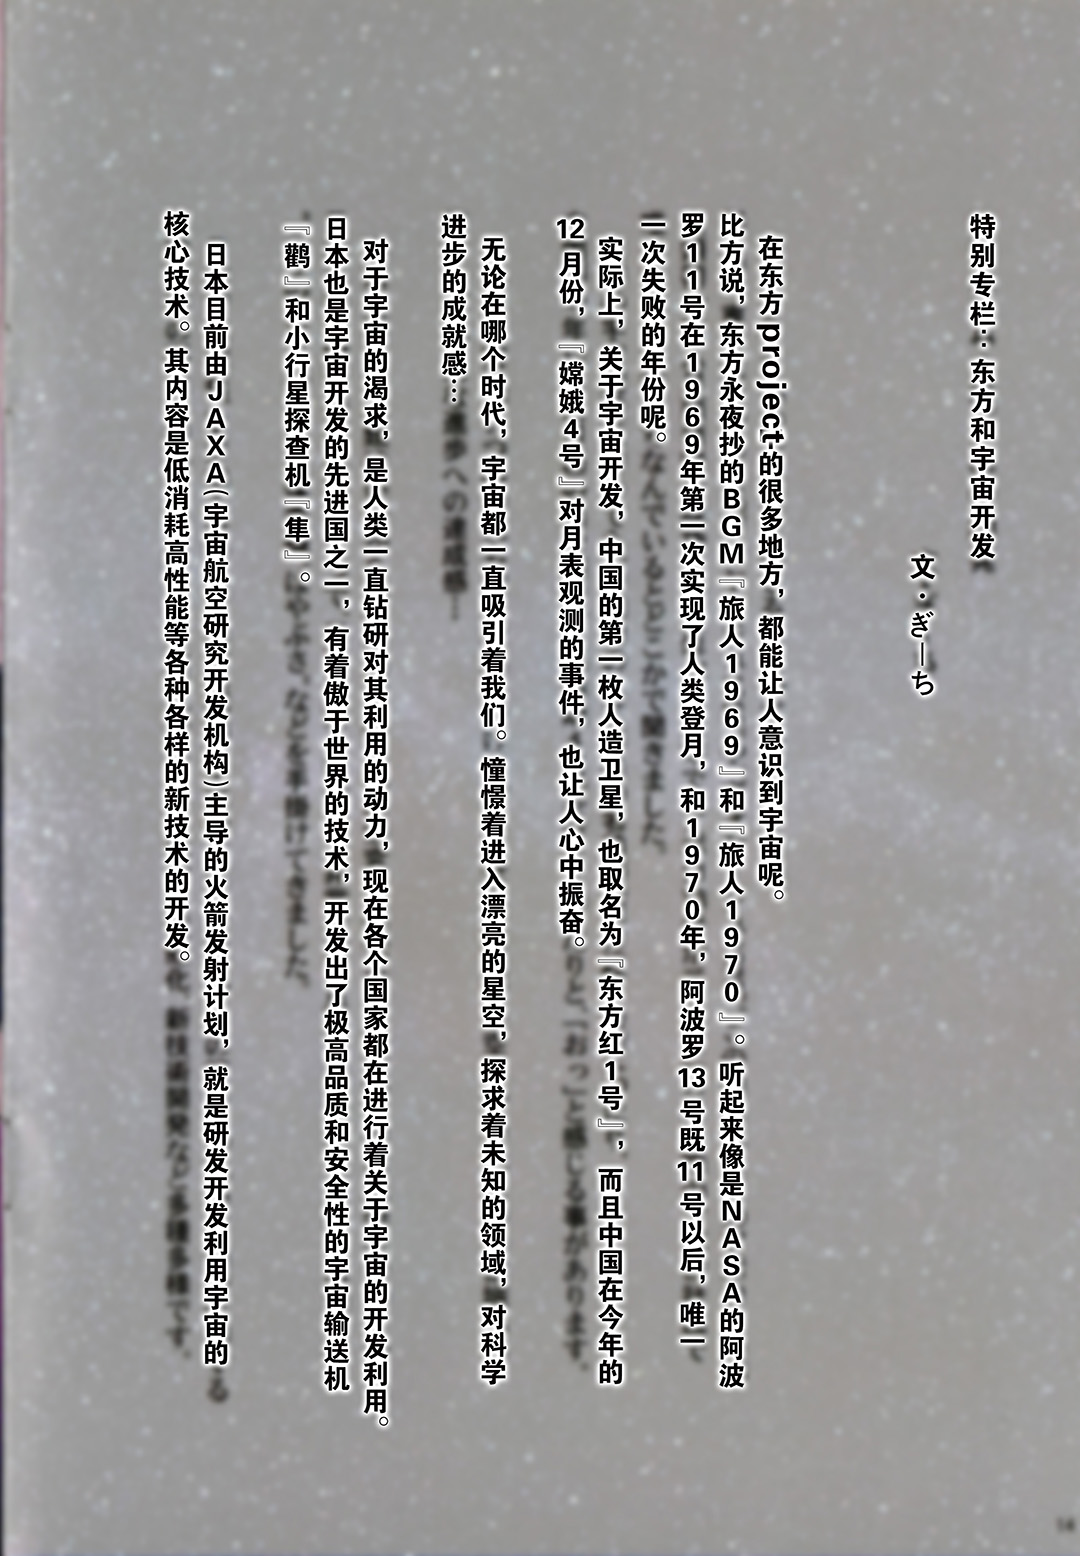 特别专栏：东方和宇宙开发
文·ぎーち
在东方project的很多地方，都能让人意识到宇宙呢。
比方说，东方永夜抄的BGM『旅人1969』和『旅人1970』。听起来像是NASA的阿波
罗11号在1969年第一次实现了人类登月，和1970年，阿波罗13号既11号以后，唯一
一次失败的年份呢。
实际上，关于宇宙开发，中国的第一枚人造卫星，也取名为『东方红1号』，而且中国在今年的
12月份，『嫦娥4号』对月表观测的事件，也让人心中振奋。
无论在哪个时代，宇宙都一直吸引着我们。憧憬着进入漂亮的星空，探求着未知的领域，对科学
进步的成就感…
对于宇宙的渴求，是人类一直钻研对其利用的动力，现在各个国家都在进行着关于宇宙的开发利用。
日本也是宇宙开发的先进国之一，有着傲于世界的技术，开发出了极高品质和安全性的宇宙输送机
『鹳』和小行星探查机『隼』。
日本目前由JAXA（宇宙航空研究开发机构）主导的火箭发射计划，就是研发开发利用宇宙的
核心技术。其内容是低消耗高性能等各种各样的新技术的开发。
14